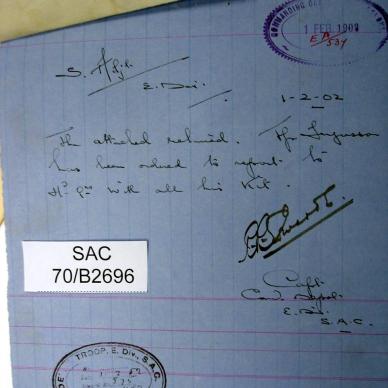 COMMANDING
1 FEB 1902
E.D/534
S. A.
E. Div.
1-2-02
The attached returned. Tpr Ferguson
has been ordered to report to
Hd Qrs with all his Kit.
Capt.
E. Div.
S.A.C.
SAC
70/B2696
TROOP, E. DIV. S.A.C.